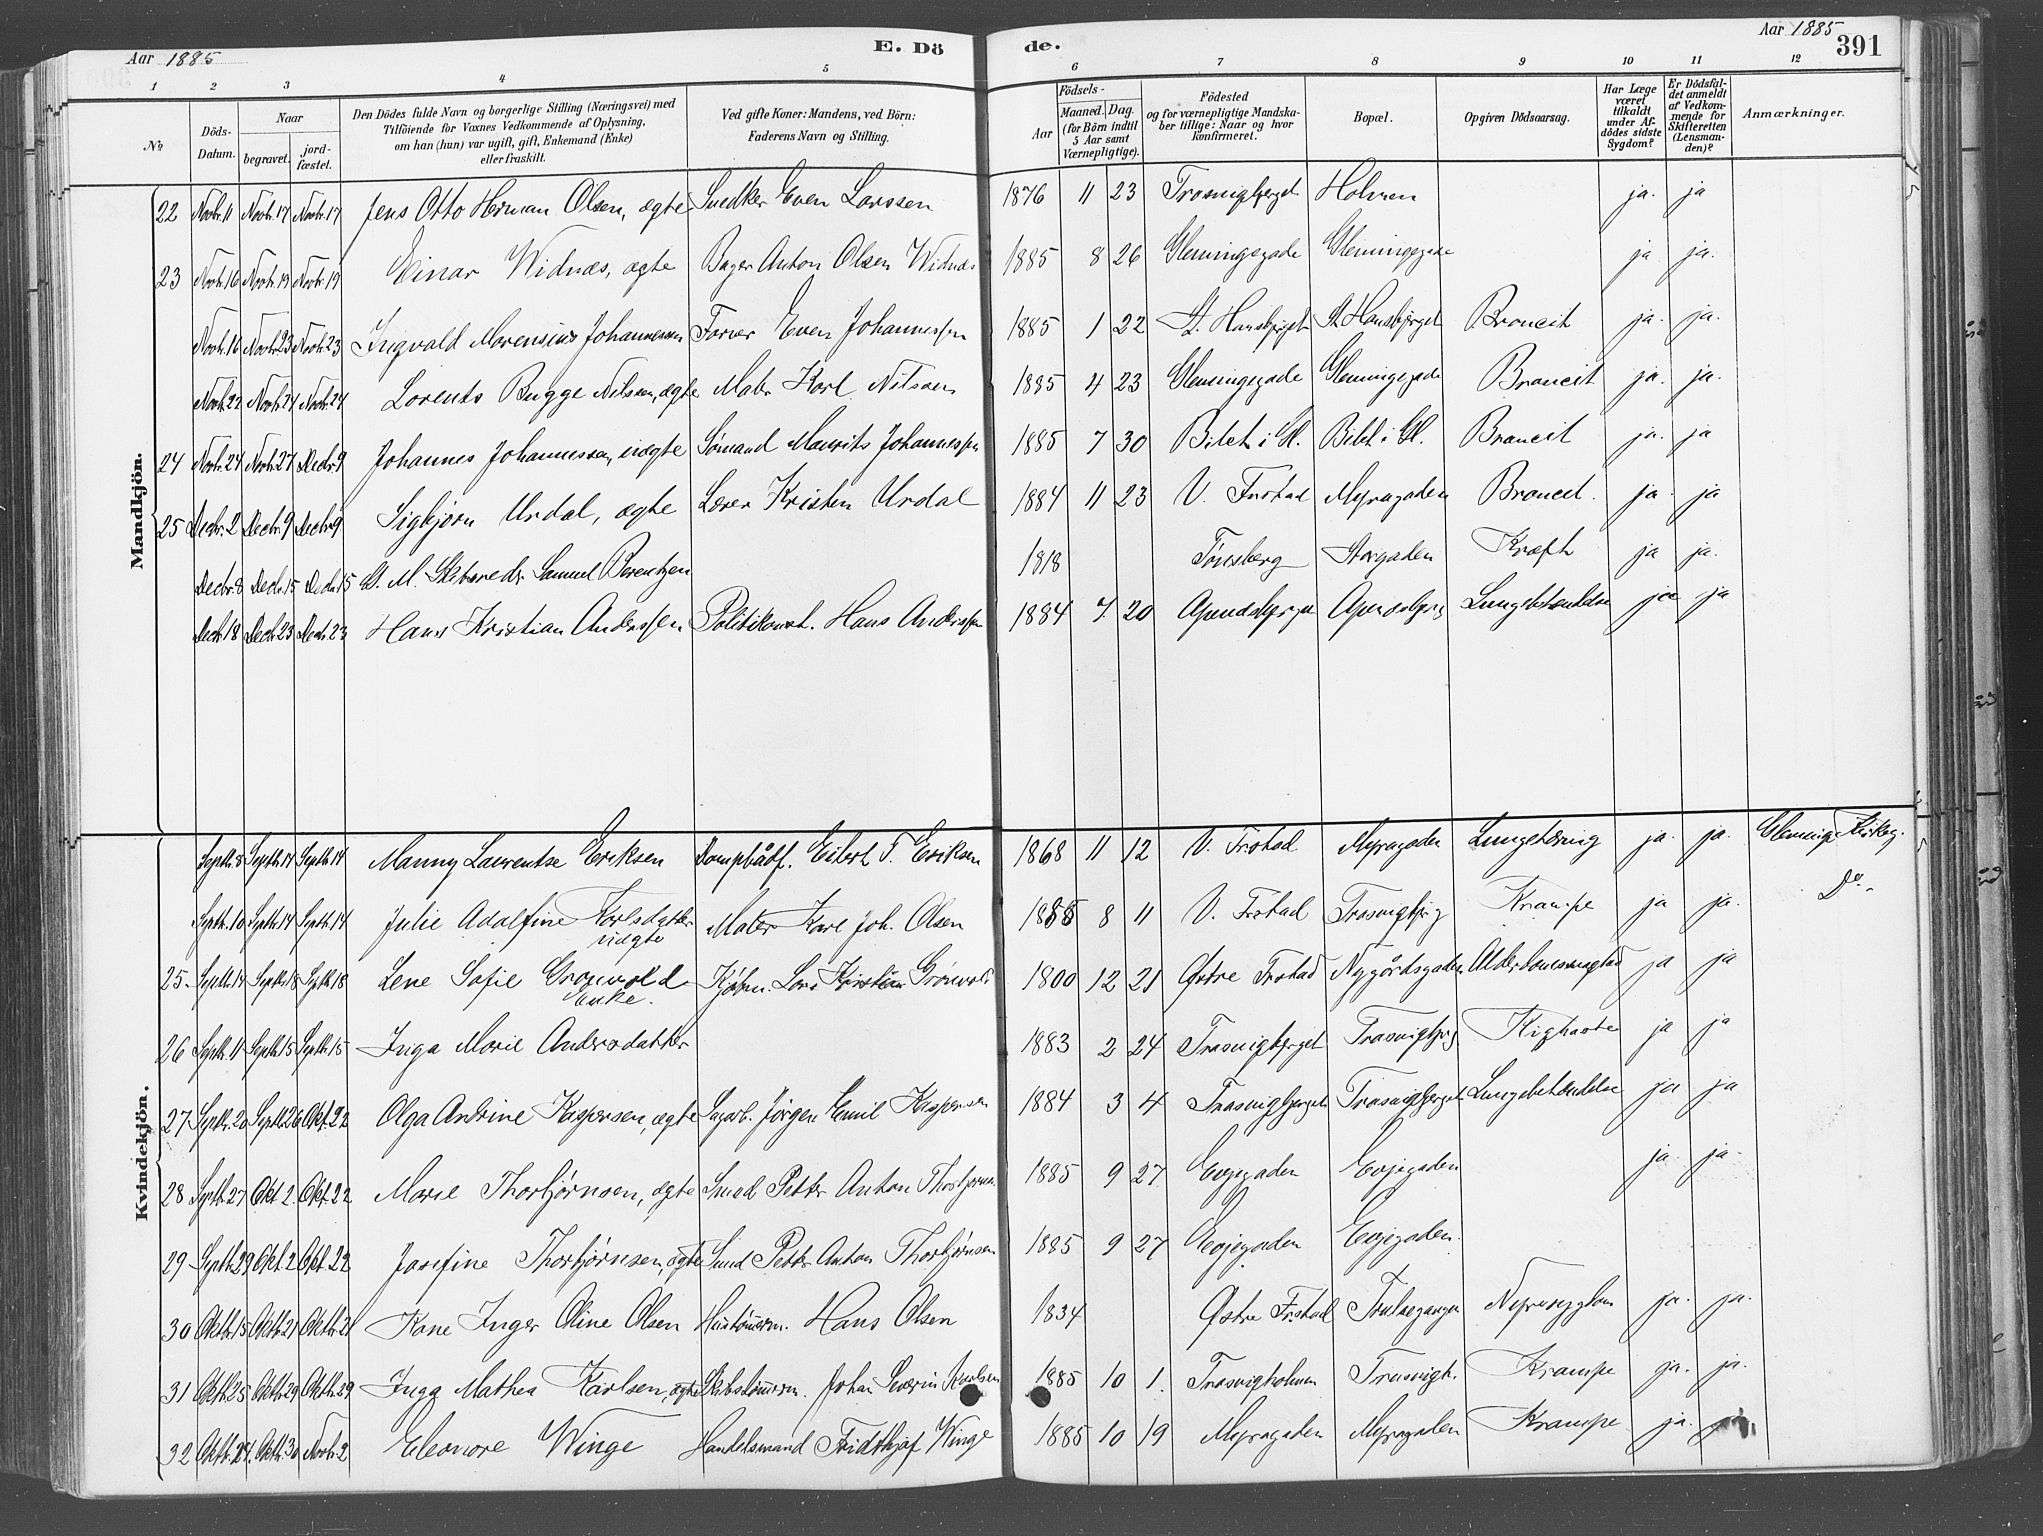 Aar 1885 E. Dö de. Aar 1885 391
1 2 3 4 5 6 7 8 9 10 11 12
No
Döds-Datum.
Naar
begravet.
jord-fæstet.
Den Dödes fulde Navn og borgerlige Stilling (Næringsvei) med
Tilföiende for Voxnes Vedkommende af Oplysning,
om han (hun) var ugift, gift, Enkemand (Enke)
eller fraskilt.
Ved gifte Koner: Mandens, ved Börn:
Faderens Navn og Stilling.
Födsels-
Aar
Maaned. Dag.
(for Börn indtil
5 Aar samt
Værnepligtige).
Födested
og for værnepligtige Mandska-
ber tillige: Naar og hvor
konfirmeret.
Bopæl.
Opgiven Dödsaarsag.
Har Læge
været
tilkaldt
under Af-
dödes sidste
Sygdom?
Er Dödsfal-
det anmeldt
af Vedkom-
mende for
Skifteretten
(Lensman-
den)?
Anmærkninger.
Mandkjön.
22 Novbr. 11 Novbr. 17 Novbr. 17 Jens Otto Herman Olsen, ægte Snedker Even Larssen 1876 11 23 Trosvigbjerget Holmen ja. ja
23 Novbr. 16 Novbr. 19 Novbr. 19 Einar Widnæs, ægte Bager Anton Olsen Widnæs 1885 8 26 Glemmingegade Glemmingegade ja ja.
Novbr. 16 Novbr. 23 Novbr. 23 Ingvald Marensius Johannessen Farver Even Johannessen 1885 1 22 St. Hansbjerget St. Hansbjerget Broncit ja. ja.
Novbr. 22 Novbr. 24 Novbr. 24 Lorents Bugge Nilssen, ægte Matr. Karl Nilsen 1885 4 23 Glemmingegade Glemmingegade Broncit ja. ja.
24 Novbr. 24 Novbr. 27 Decbr. 9 Johannes Johannessen, uægte Sømand Maurits Johannessen 1885 7 30 Bilet i Gl. Bilet i Gl. Broncit ja. ja
25 Decbr. 2 Decbr. 9 Decbr. 9 Sigbjørn Urdal, ægte Lærer Kristen Urdal 1884 11 23 V. Frstad Myragaden Broncit. ja. ja
Decbr. 8 Decbr. 15 Decbr. 15 G. M. Skibsreder Samuel Berentzen 1818 Tønsberg Storgaden Kræft ja ja.
Decbr. 18 Decbr. 23 Decbr. 23 Hans Kristian Anderssen Politikonst. Hans Anderssen 1884 7. 20 Apenesbjerget Apenesbjerg Lungebetændelse ja ja
Kvindekjön.
Septbr. 8 Septbr. 14 Septbr. 14 Manny Laurentse Eriksen Dampbådf. Eilert T. Eriksen 1868 11 12 V. Frstad Myragaden Lungetæring ja. ja. Glemminge Kirkeg.
Septbr. 10 Septbr. 14 Septbr. 14 Julie Adolfine Karlsdatter uægte Mater Karl Joh. Olsen 1885 8 11 V. Frstad Trosvigbjerg Krampe ja ja. Do.
25. Septbr. 14 Septbr. 18 Septbr. 18 Lene Sofie Grønvold Enke. Kjøbm. Lars Kristian Grønvold 1800 12 21 Østre Frstad Nygårdsgaden Alderdomssvaghed ja ja
26 Septbr. 11 Septbr. 15 Septbr. 15 Inga Marie Andersdatter 1883 2 24 Trosvigbjerget Trosvigbjerg Kighoste ja ja
27 Septbr. 20 Septbr. 26 Okt. 22 Olga Andrine Kaspersen, ægte Sagarb. Jørgen Emil Kaspersen 1884 3 4 Trosvigbjerget Trosvigbjerget Lungebetændelse ja ja
28 Septbr. 27 Okt. 2 Okt. 22 Marie Thorbjørnsen, ægte Smed Petter Anton Thorbjørnsen 1885 9 27 Evjegaden Evjegaden ja. ja.
29 Septbr. 29 Okt. 2 Okt. 22 Josefine Thorbjørnsen, ægte Smed Petter Anton Thorbjørnsen 1885 9 27 Evjegaden Evjegaden.
30 Oktbr. 15 Oktbr. 21 Oktbr. 21 Kone Inger Oline Olsen Hustømerm. Hans Olsen 1834 Østre Frstad ja. ja.
31 Oktbr. 25 Oktbr. 29 Oktbr. 29 Inga Mathea Karlsen, ægte Skibstømerm. Johan Severin Karlsen 1885 10 1. Trosvigholmen Trosvigh. Krampe ja. ja.
32 Oktbr. 24. Oktbr. 30 Novbr. 2 Eleonore Winge Handelsmand Fridthjof Winge 1885 10 19 Myragaden Myragaden Krampe ja. ja